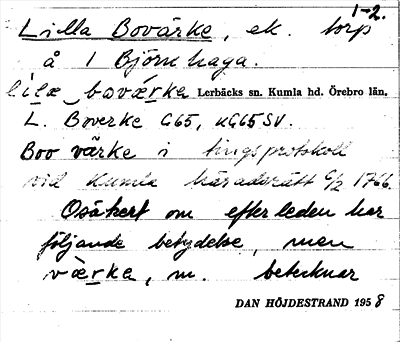 1-2.
Lilla Bovärke, ek. torp
å 1 Björnhaga.
lilæ bovæ̀rke Lerbäcks sn. Kumla hd. Örebro län.
L. Boverke G65, uG65SV.
Boo värke i tingsprotokoll
vid Kumla häradsrätt 6/2 1766.
Osäkert om efterleden har
följande betydelse, men
værke, m. betecknar
DAN HÖJDESTRAND 1958